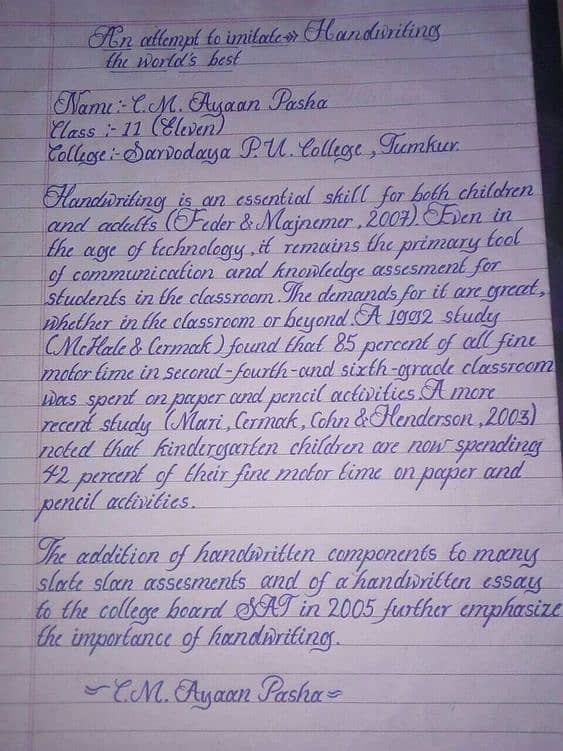 An attempt to imitate → Handwriting
the world's best
Name:- C.M. Ayaan Pasha
Class :- 11 (Eleven)
College:- Sarvodaya P.U. College, Tumkur.
Handwriting is an essential skill for both children
and adults (Feder & Majnemer, 2007). Even in
the age of technology, it remains the primary tool
of communication and knowledge assesment for
students in the classroom. The demands for it are great,
whether in the classroom or beyond. A 1992 study
(McHale & Cermak) found that 85 percent of all fine
motor time in second-fourth-and sixth-grade classroom
was spent on paper and pencil activities. A more
recent study (Mari, Cermak, Cohn & Henderson, 2003)
noted that kindergarten children are now spending
42 percent of their fine motor time on paper and
pencil activities.
The addition of handwritten components to many
state slan assesments and of a handwritten essay
to the college board SAT in 2005 further emphasize
the importance of handwriting.
~ C.M. Ayaan Pasha ~